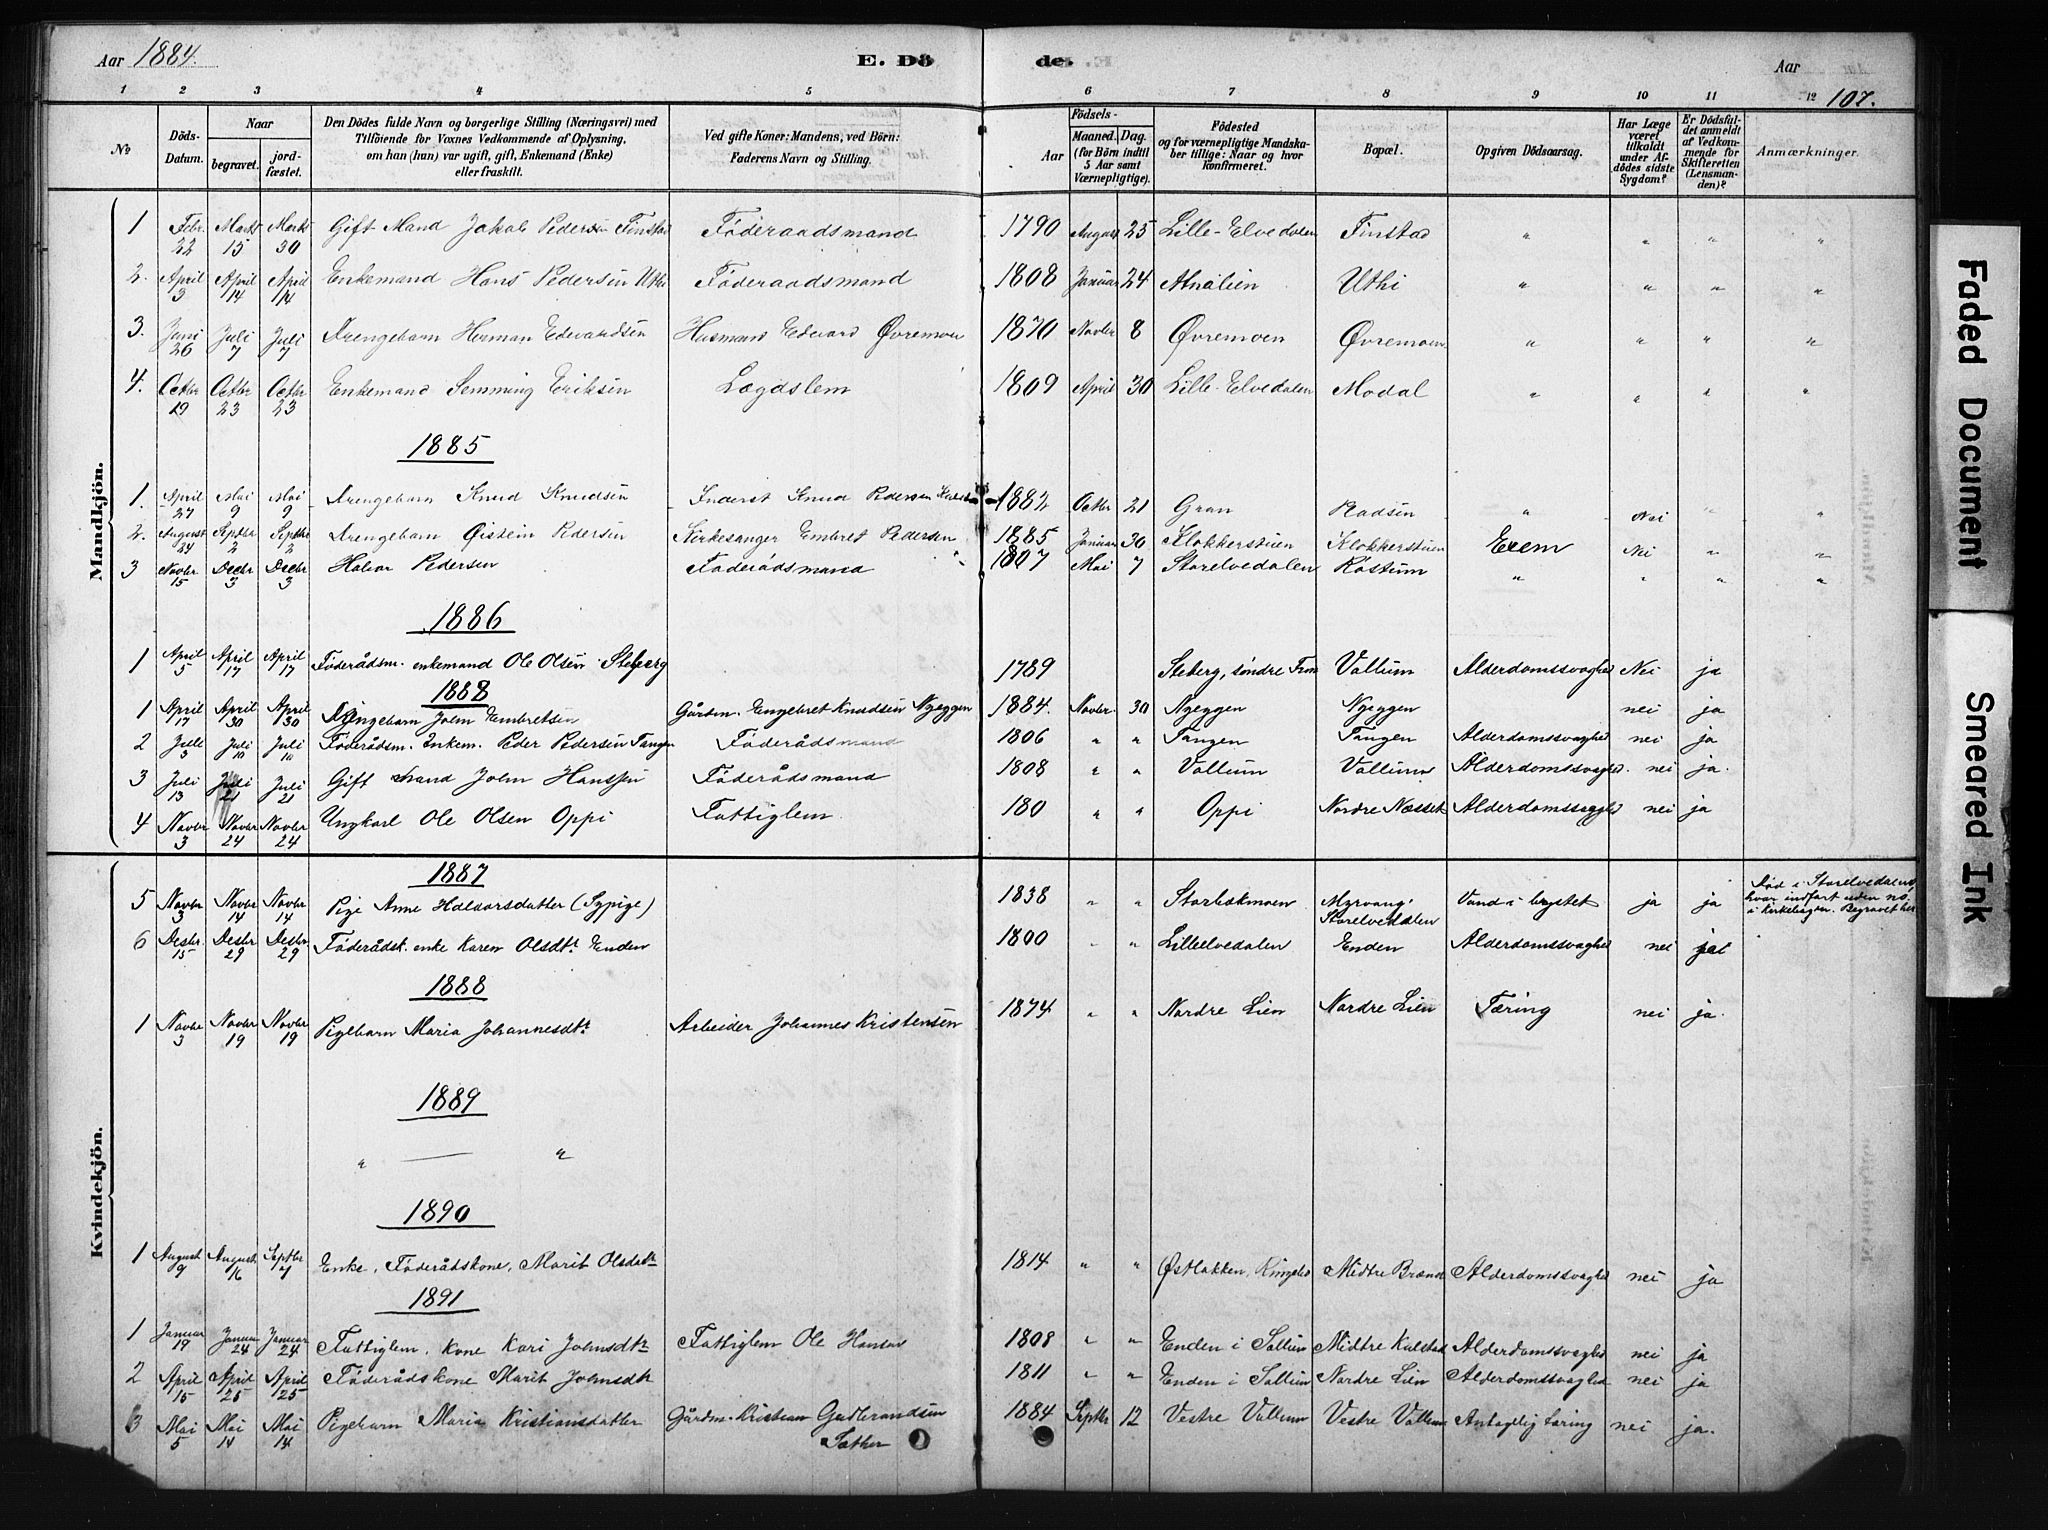 Aar 1884. E. Dö de. Aar 107.
1 2 3 4 5 6 7 8 9 10 11 12
No Döds-Datum. Naar begravet. jordfæstet. Den Dödes fulde Navn og borgerlige Stilling (Næringsvei) med Tilföiende for Voxnes Vedkommende af Oplysning, om han (hun) var ugift, gift, Enkemand (Enke) eller fraskilt. Ved gifte Koner: Mandens, ved Börn: Faderens Navn og Stilling. Födsels- Aar Maaned. Dag. (for Börn indtil 5 Aar samt Værnepligtige). Födested og for værnepligtige Mandskaber tillige: Naar og hvor konfirmeret. Bopæl. Opgiven Dödsaarsag. Har Læge været tilkaldt under Afdödes sidste Sygdom? Er Dödsfuldet anmeldt af Vedkommende for Skifteretten (Lensmanden)? Anmærkninger.
Mandkjön.
1 Febr. 22 Marts 15 Marts 30 Gift Mand Jakob Pedersen Finstad Föderaadsmand 1790 August 25 Lille-Elvedalen Finstad " " " "
2. April 3 April 14 April 14 Enkemand Hans Pedersen Uthi Föderaadsmand 1808 Januar 24 Atnalien Uthi " " " "
3. Juni 26 Juli 7 Juli 7 Drengebarn Herman Edvardsen Husmand Edvard Øvremoen 1870 Novbr 8 Øvremoen Øvremoen " " " "
4. Octbr 19 Octbr 23 Octbr 23 Enkemand Semming Eriksen Lægdslem 1809 April 30 Lille-Elvedalen Modal " " " "
1885
1. April 27 Mai 9 Mai 9 Drengebarn Knud Knudsen Inderst Knud Pedersen 1882 Octbr 21 Gran " Nei " "
2. August 24 Septbr 2 Septbr 2 Drengebarn Øistein Pedersen Kirkesanger Embret Pedersen 1885 Januar 30 Klokkerstuen Klokkerstuen Exem Nei " "
3 Novbr 15 Decbr 3 Decbr 3 Halvor Pedersen Föderådsmand 1807 Mai 7 Storelvedalen Kostum " " " "
1886
1 April 5 April 17 April 17 Föderådsm. enkemand Ole Olsen Steberg 1789 Steberg, söndre Fron Vollum Alderdomssvaghed Nei ja
1888
1 April 17 April 30 April 30 Drengebarn John Embretsen Gårdm. Engebret Knudsen Nyeggen 1884. Novbr. 30 Nyeggen Nyeggen nei ja
2 Juli 3 Juli 10 Juli 10 Föderådsm. Enkem. Peder Pedersen Tangen Föderådsmand 1806 " " Tangen Tangen Alderdomssvaghed nei ja
3 Juli 13 Juli 21 Juli 21 Gift mand John Hanssen Föderådsmand 1808 " " Vollum Vollum Alderdomssvaghed. nei ja.
4 Novbr 3 Novbr 24 Novbr 24 Ungkarl Ole Olsen Oppi Fattiglem 180 " " Oppi Nordre Næsset Alderdomssvaghed nei ja
Kvindekjön.
1887
5 Novbr 3 Novbr 14 Novbr 14 Pige Anne Halvorsdatter (Sypige) 1838 " " Storbækmoen Myrvang, Storelvedalen Vand i brystet ja ja Död i Storelvedalen, hvor indfört uden no. i kirkebogen. Begravet her
6 Desbr. 15 Desbr 29 Desbr 29 Föderådsk. enke Karen Olsdtr Enden 1800 " " Lilleelvedalen Enden Alderdomssvaghed nei ja
1888
1 Novbr 3 Novbr 19 Novbr 19 Pigebarn Maria Johannesdtr Arbeider Johannes Kristensen 1874 " " Nordre Lien Nordre Lien Tæring nei ja.
1889
" — "
1890
1 August 9 August 16 Septbr 7 Enke, Föderådskone, Marit Olsdatr 1814 " " Østlakken, Ringebo Midtre Brænd Alderdomssvaghed nei ja
1891
1 Januar 19 Januar 24 Januar 24 Fattiglem. Kone Kari Johnsdtr Fattiglem Ole Hansen 1808 " " Enden i Sollien Midtre Kulstad Alderdomssvaghed nei ja
2 April 15 April 25 April 25 Föderådskone Marit Johnsdtr 1811 " " Enden i Sollien Nordre Lien Alderdomssvaghed nei ja
3 Mai 5 Mai 14 Mai 14 Pigebarn Maria Kristiansdatter Gårdm. Kristian Gudbrandsen Sæther 1884 Septbr 12 Vestre Vollum Vestre Vollum Antagelig tæring nei ja.
Faded Document
Smeared Ink